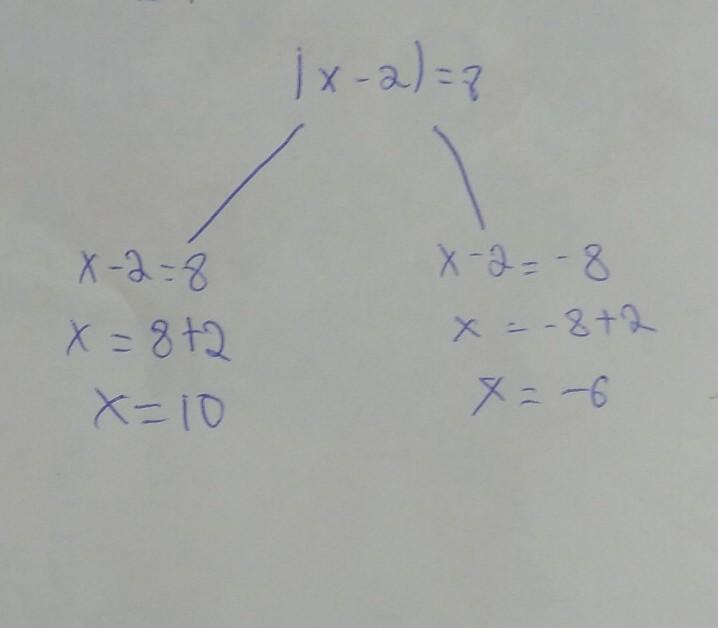 |x-2|=8
x-2=8
x=8+2
x=10
x-2=-8
x=-8+2
x=-6